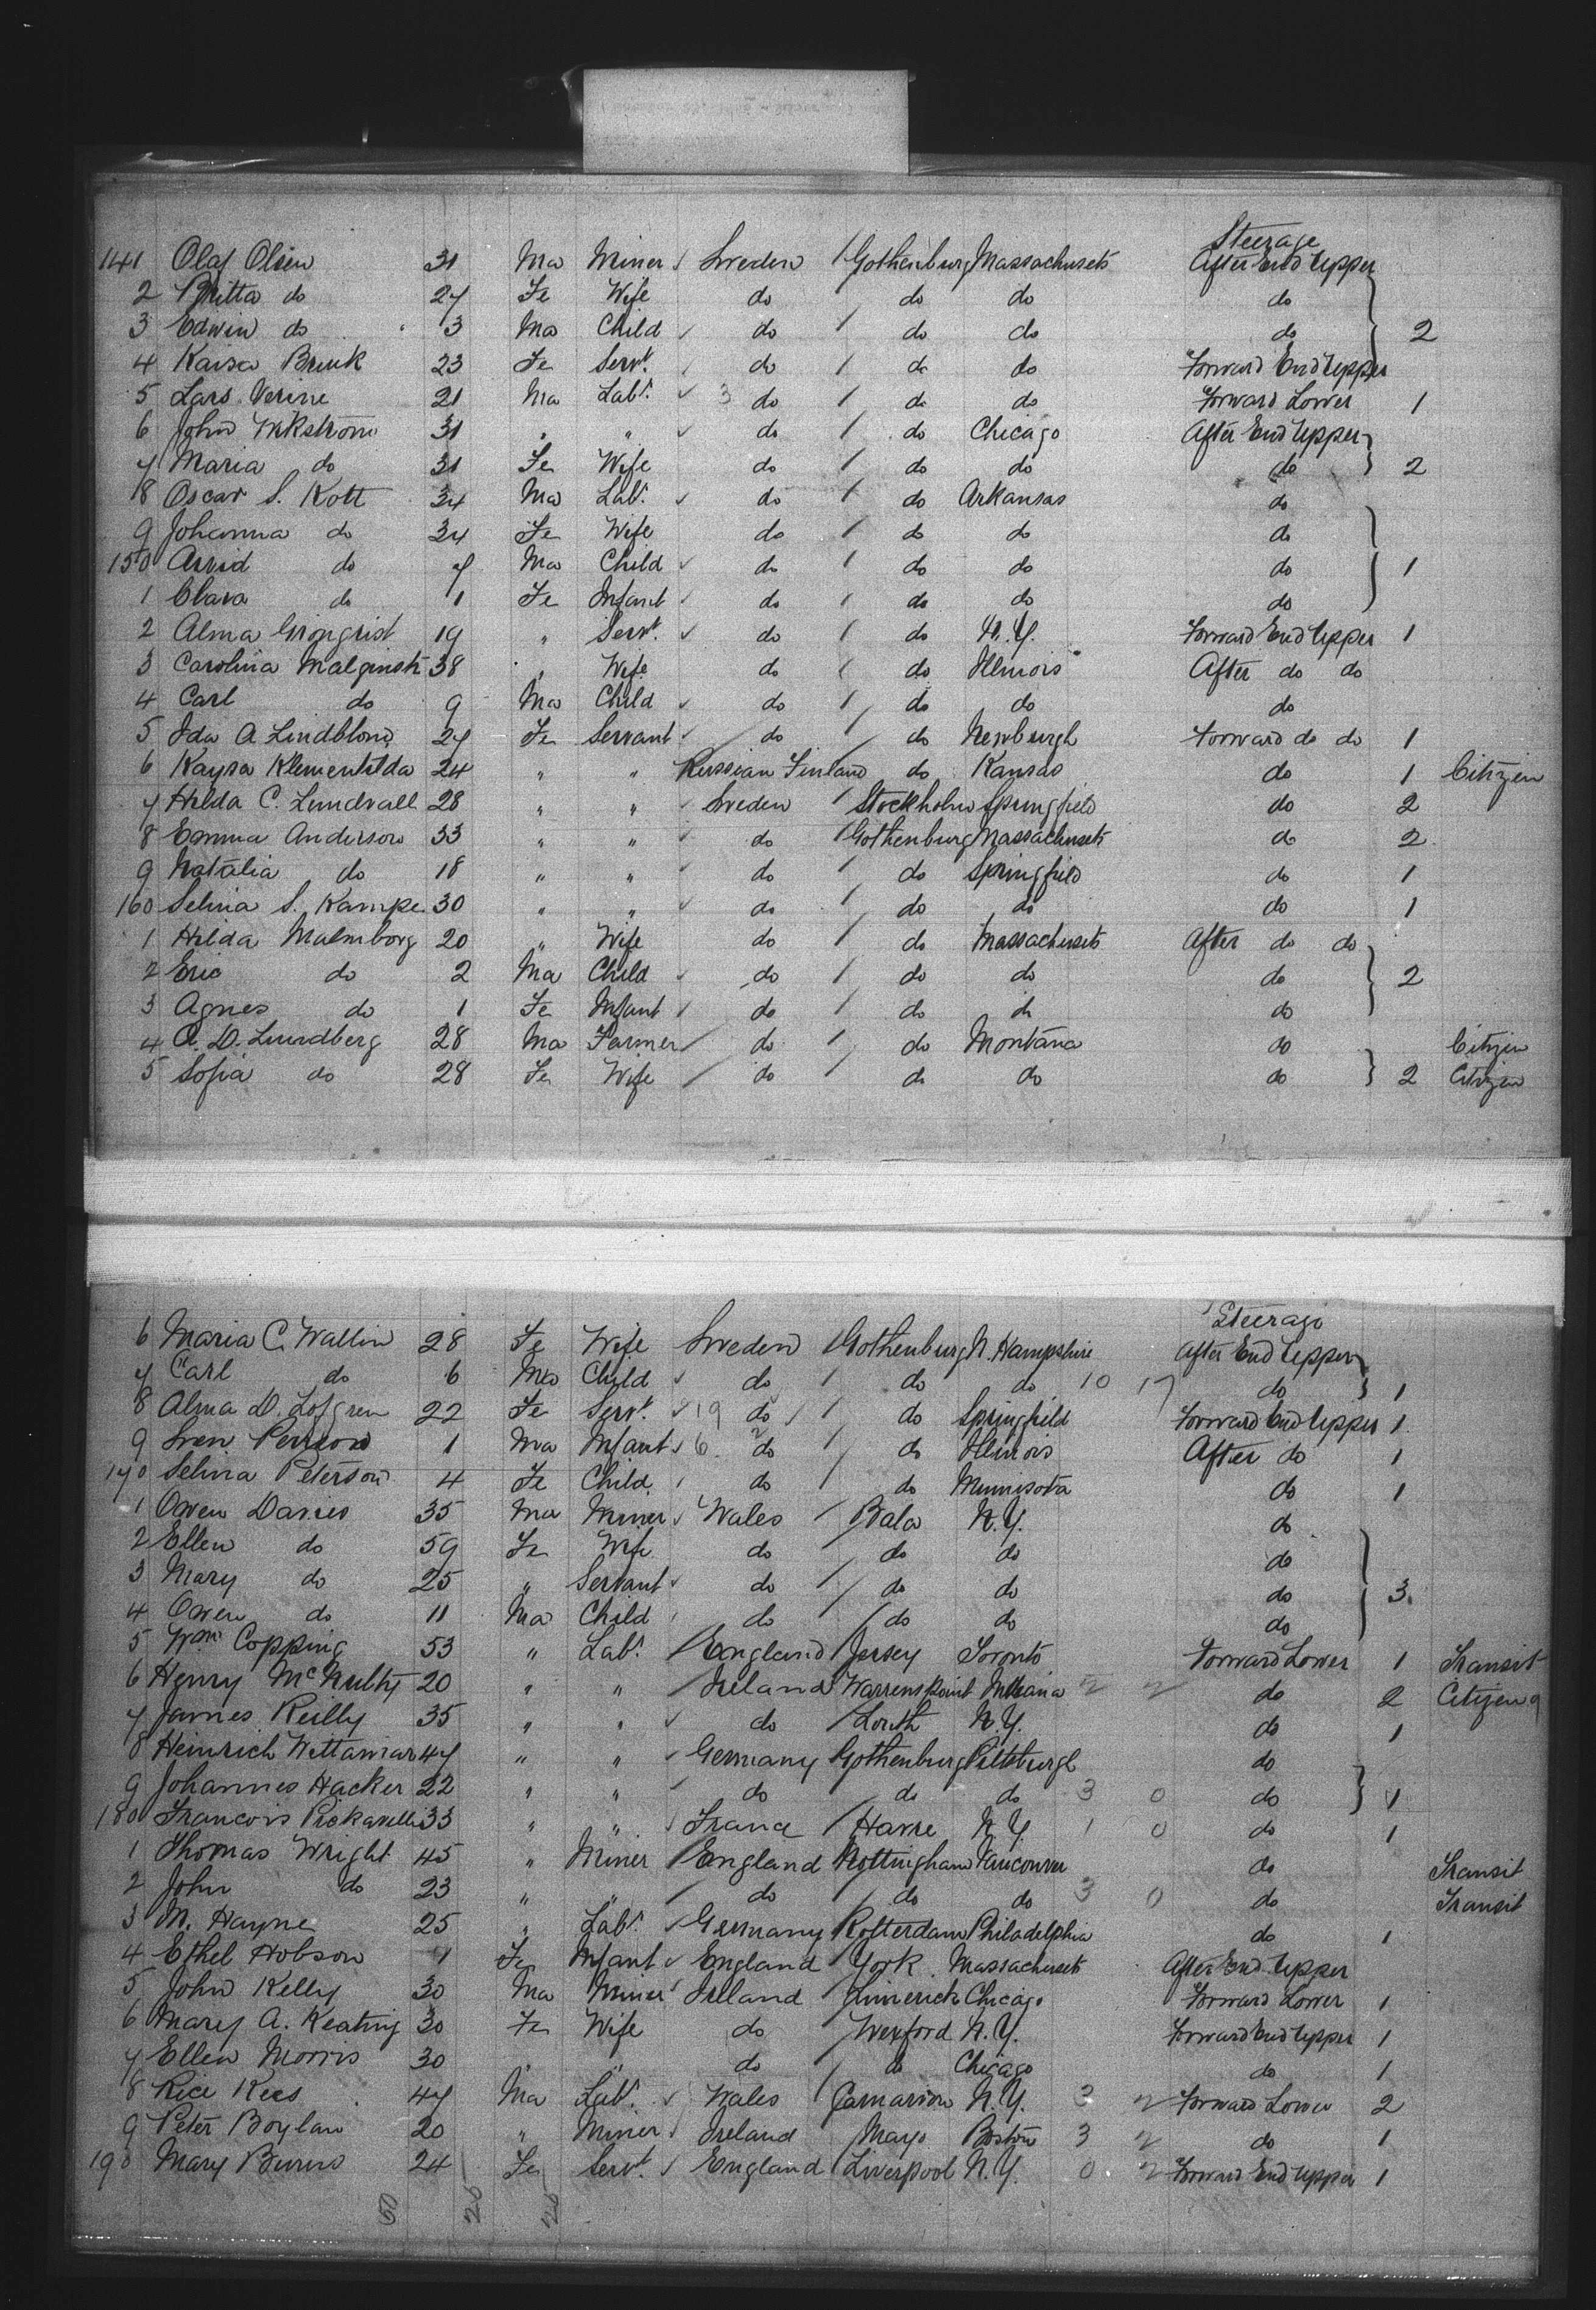 Steerage
141 Olaf Olsen 31 Ma Miner Sweden Gothenburg Massachusets After End Upper
2 Britta do 27 Fe Wife do do do do
3 Edwin do 3 Ma Child do do do do 2
4 Kaisa Bruk 23 Fe Servt. do do do Forward End Upper
5 Lars Verine 21 Ma Labr. 3 do do do Forward Lower 1
6 John 31 " " do do Chicago After End Upper
7 Maria do 31 Fe Wife do do do do 2
8 Oscar S. Kott 34 Ma Labr. do do Arkansas do
9 Johanna do 34 Fe Wife do do do do
150 Arvid do 7 Ma Child do do do do 1
1 Clara do 1 Fe Infant do do do do
2 Alma 19 " Servt. do do N.Y. Forward End Upper 1
3 Carolina 38 " Wife do do Illinois After do do
4 Carl do 9 Ma Child do do do do
5 Ida A Lindblom 27 Fe Servant do do Newburgh Forward do do 1
6 Kaysa 24 " " Russian Finland do Kansas do 1 Citizen
7 Hilda C. Lundvall 28 " " Sweden Stockholm Springfield do 2
8 Emma Anderson 33 " " do Gothenburg Massachusets do 2
9 Natalia do 18 " " do do Springfield do 1
160 Selina S. Kampe 30 " " do do do do 1
1 Hilda Malmborg 20 " Wife do do Massachusets After do do
2 Eric do 2 Ma Child do do do do 2
3 Agnes do 1 Fe Infant do do do do
4 A. D. Lundberg 28 Ma Farmer do do Montana do Citizen
5 Sofia do 28 Fe Wife do do do do 2 Citizen
Steerage
6 Maria C. Wallin 28 Fe Wife Sweden Gothenburg N. Hampshire After End Upper
7 Carl do 6 Ma Child do do do 10 17 do 1
8 Alma D. Lofgren 22 Fe Servt. 19 do do Springfield Forward End Upper 1
9 Sven Persson 1 Ma Infant 6 do do Illinois After do 1
170 Selina Peterson 4 Fe Child do do Minnisota do 1
1 Owen Davies 35 Ma Miner Wales Bala N.Y. do
2 Ellen do 59 Fe Wife do do do do
3 Mary do 25 " Servant do do do do 3
4 Owen do 11 Ma Child do do do do
5 Wm Copping 53 " Labr. England Jersey Toronto Forward Lower 1 Transit
6 Henry McNulty 20 " " Ireland Warrenspoint Indiana 2 2 do 2 Citizen
7 James Reilly 35 " " do Louth N.Y. do 1
8 Heinrich 47 " " Germany Gothenburg Pittsburgh do
9 Johannes Hacker 22 " " do do do 3 0 do 1
180 Francois 33 " " France Havre N.Y. 1 0 do 1
1 Thomas Wright 45 " Miner England Nottingham Vancouver do Transit
2 John do 23 " " do do do 3 0 do Transit
3 M. Hayne 25 " Labr. Germany Rotterdam Philadelphia do 1
4 Ethel Hobson 1 Fe Infant England York Massachusets After End Upper
5 John Kelly 30 Ma Miner Ireland Limerick Chicago Forward Lower 1
6 Mary A. Keating 30 Fe Wife do Wexford N.Y. Forward End Upper 1
7 Ellen Morris 30 " " do do Chicago do 1
8 Rice Rees 47 Ma Labr. Wales Carnarvon N.Y. 3 2 Forward Lower 2
9 Peter Boylan 20 " Miner Ireland Mayo Boston 3 2 do 1
190 Mary Burns 24 Fe Servt. England Liverpool N.Y. 0 2 Forward End Upper 1